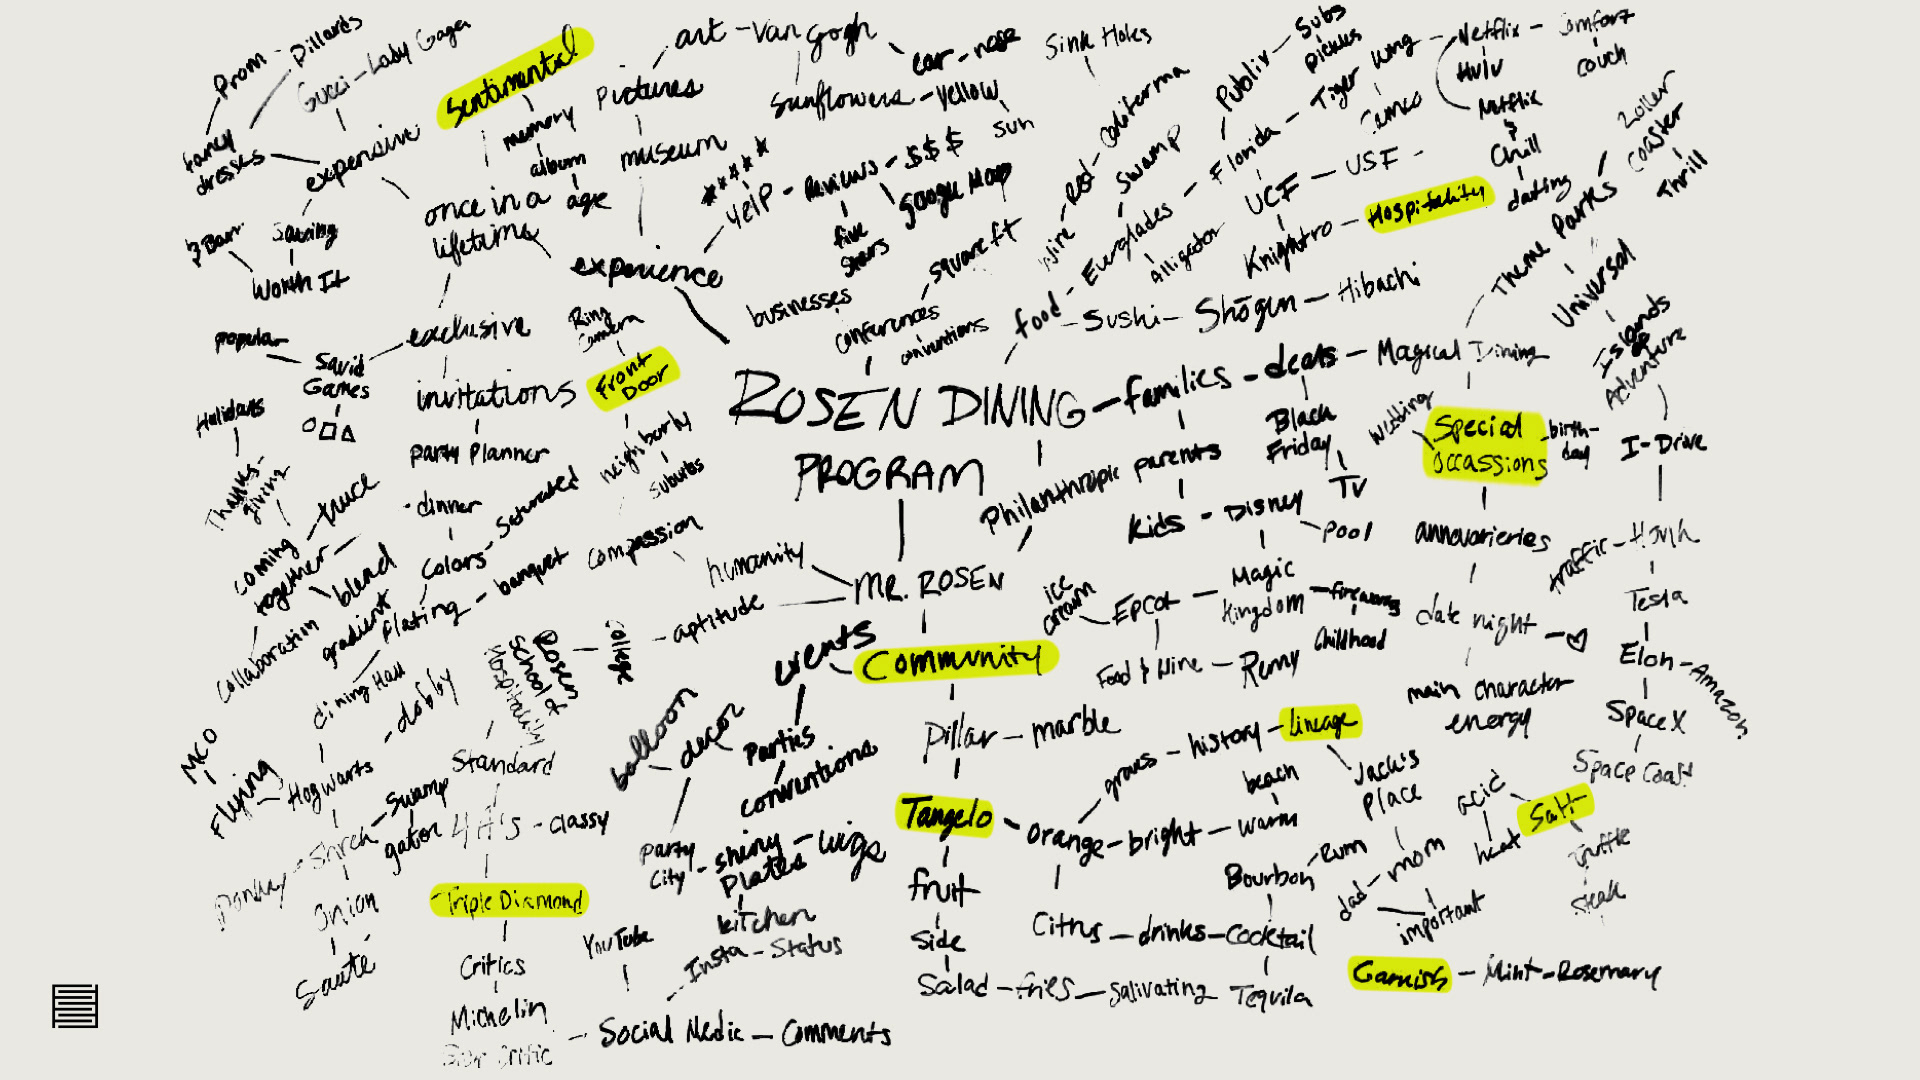 Prom - Dillards
Gucci - Lady Gaga
fancy
dresses
expensive
Sentimental
memory
album
age
once in a
lifetime
Saving
Worth It
Pictures
art - Van Gogh
ear - nose
Sunflowers - Yellow
Sun
museum
experience
*****
Yelp - Reviews - $$$
five
stars
Google Map
businesses
conferences
conventions
square ft
Sink Holes
Wire - Red - California
Swamp
Publix - Subs
pickles
food - Everglades - Florida - Tiger King - Netflix - Comfort
couch
Hulu
Netflix
&
Chill
dating
Alligator
UCF - USF -
Knightro - Hospitality
Sushi - Shōgun - Hibachi
Theme Parks
coaster
Thrill
Universal
Islands
of
Adventure
I-Drive
popular
Squid
Games
exclusive
invitations
Party Planner
Ring
Camera
Front
Door
neighborly
suburbs
ROSEN DINING - families - deals - Magical Dining
PROGRAM
Philanthropic
parents
Black
Friday
TV
kids - Disney
Pool
Wedding
Special
occassions
birth-
day
annevorieries
date night - ♡
main character
energy
Holidays
Thanks-
giving
coming
together
truce
blend
gradient
Collaboration
dinner
Colors - Saturated
Plating - banquet
compassion
humanity
MR. ROSEN
aptitude
College
Rosen
School of
Hospitality
dining Hall
Hogwarts - dobby
MCO
Flying
Shrek - Swamp
gator
Donkey
Onion
Sauté
Standard
4 H's - classy
Triple Diamond
Critics
Michelin
Star Critic
Social Media - Comments
YouTube
Insta - Status
events
Community
balloon - decor
Parties
conventions
Party
City - shiny
Plates - wigs
kitchen
Pillar - marble
Tangelo - orange - bright - warm
beach
fruit
Side
Salad - fries - salivating
Citrus - drinks - Cocktail
Tequila
Bourbon - Rum
history - Lineage
Jack's
Place
dad - mom
important
ice
cream
Epcot - Magic
Kingdom - fireworks
Childhood
Food & Wine - Remy
traffic
Tesla
Elon - Amazon
Space X
Space Coast
acid
heat
Salt
truffle
steak
Garnish - Mint - Rosemary